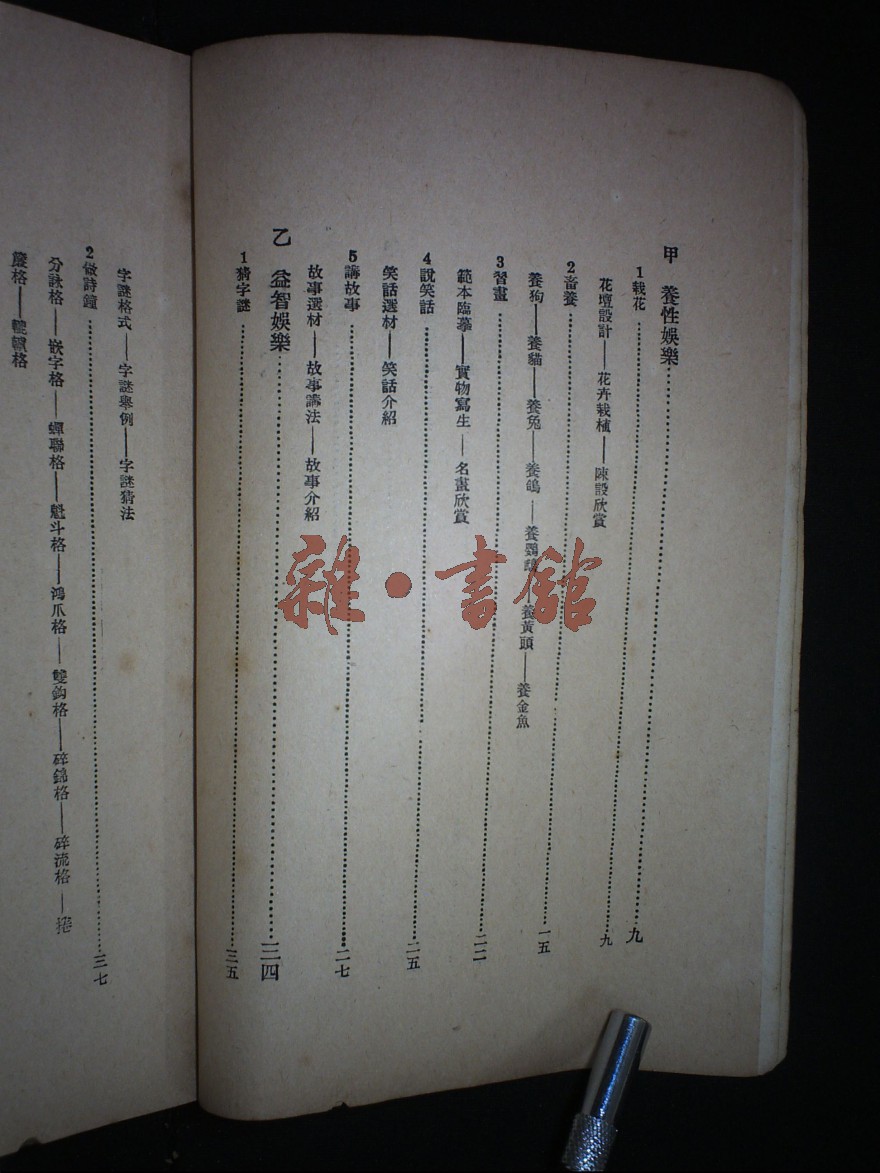 甲　養性娛樂……九
1栽花……九
花壇設計——花卉栽植——陳設欣賞
2畜養……一五
養狗——養貓——養兔——養鴿——養鸚鵡——養黃頭——養金魚
3習畫……二二
範本臨摹——實物寫生——名畫欣賞
4說笑話……二五
笑話選材——笑話介紹
5講故事……二七
故事選材——故事講法——故事介紹
乙　益智娛樂……三四
1猜字謎……三五
字謎格式——字謎舉例——字謎猜法
2做詩鐘……三七
分詠格——嵌字格——蟬聯格——魁斗格——鴻爪格——雙鈎格——碎錦格——碎流格——捲
簾格——轆轤格
雜·書館